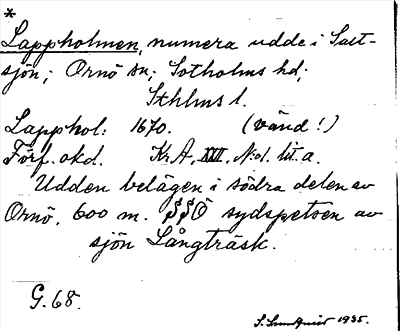 *
Lappholmen, numera udde i Salt-
sjön; Ornö sn; Sotholms hd;
Sthlms l.
Lapphol: 1670. (vänd!)
Förf. okd. Kr A, XVII, N:o 1. lit. a.
Udden belägen i södra delen av
Ornö, 600 m. SSÖ sydspetsen av
sjön Långträsk.
G. 68.
1935.